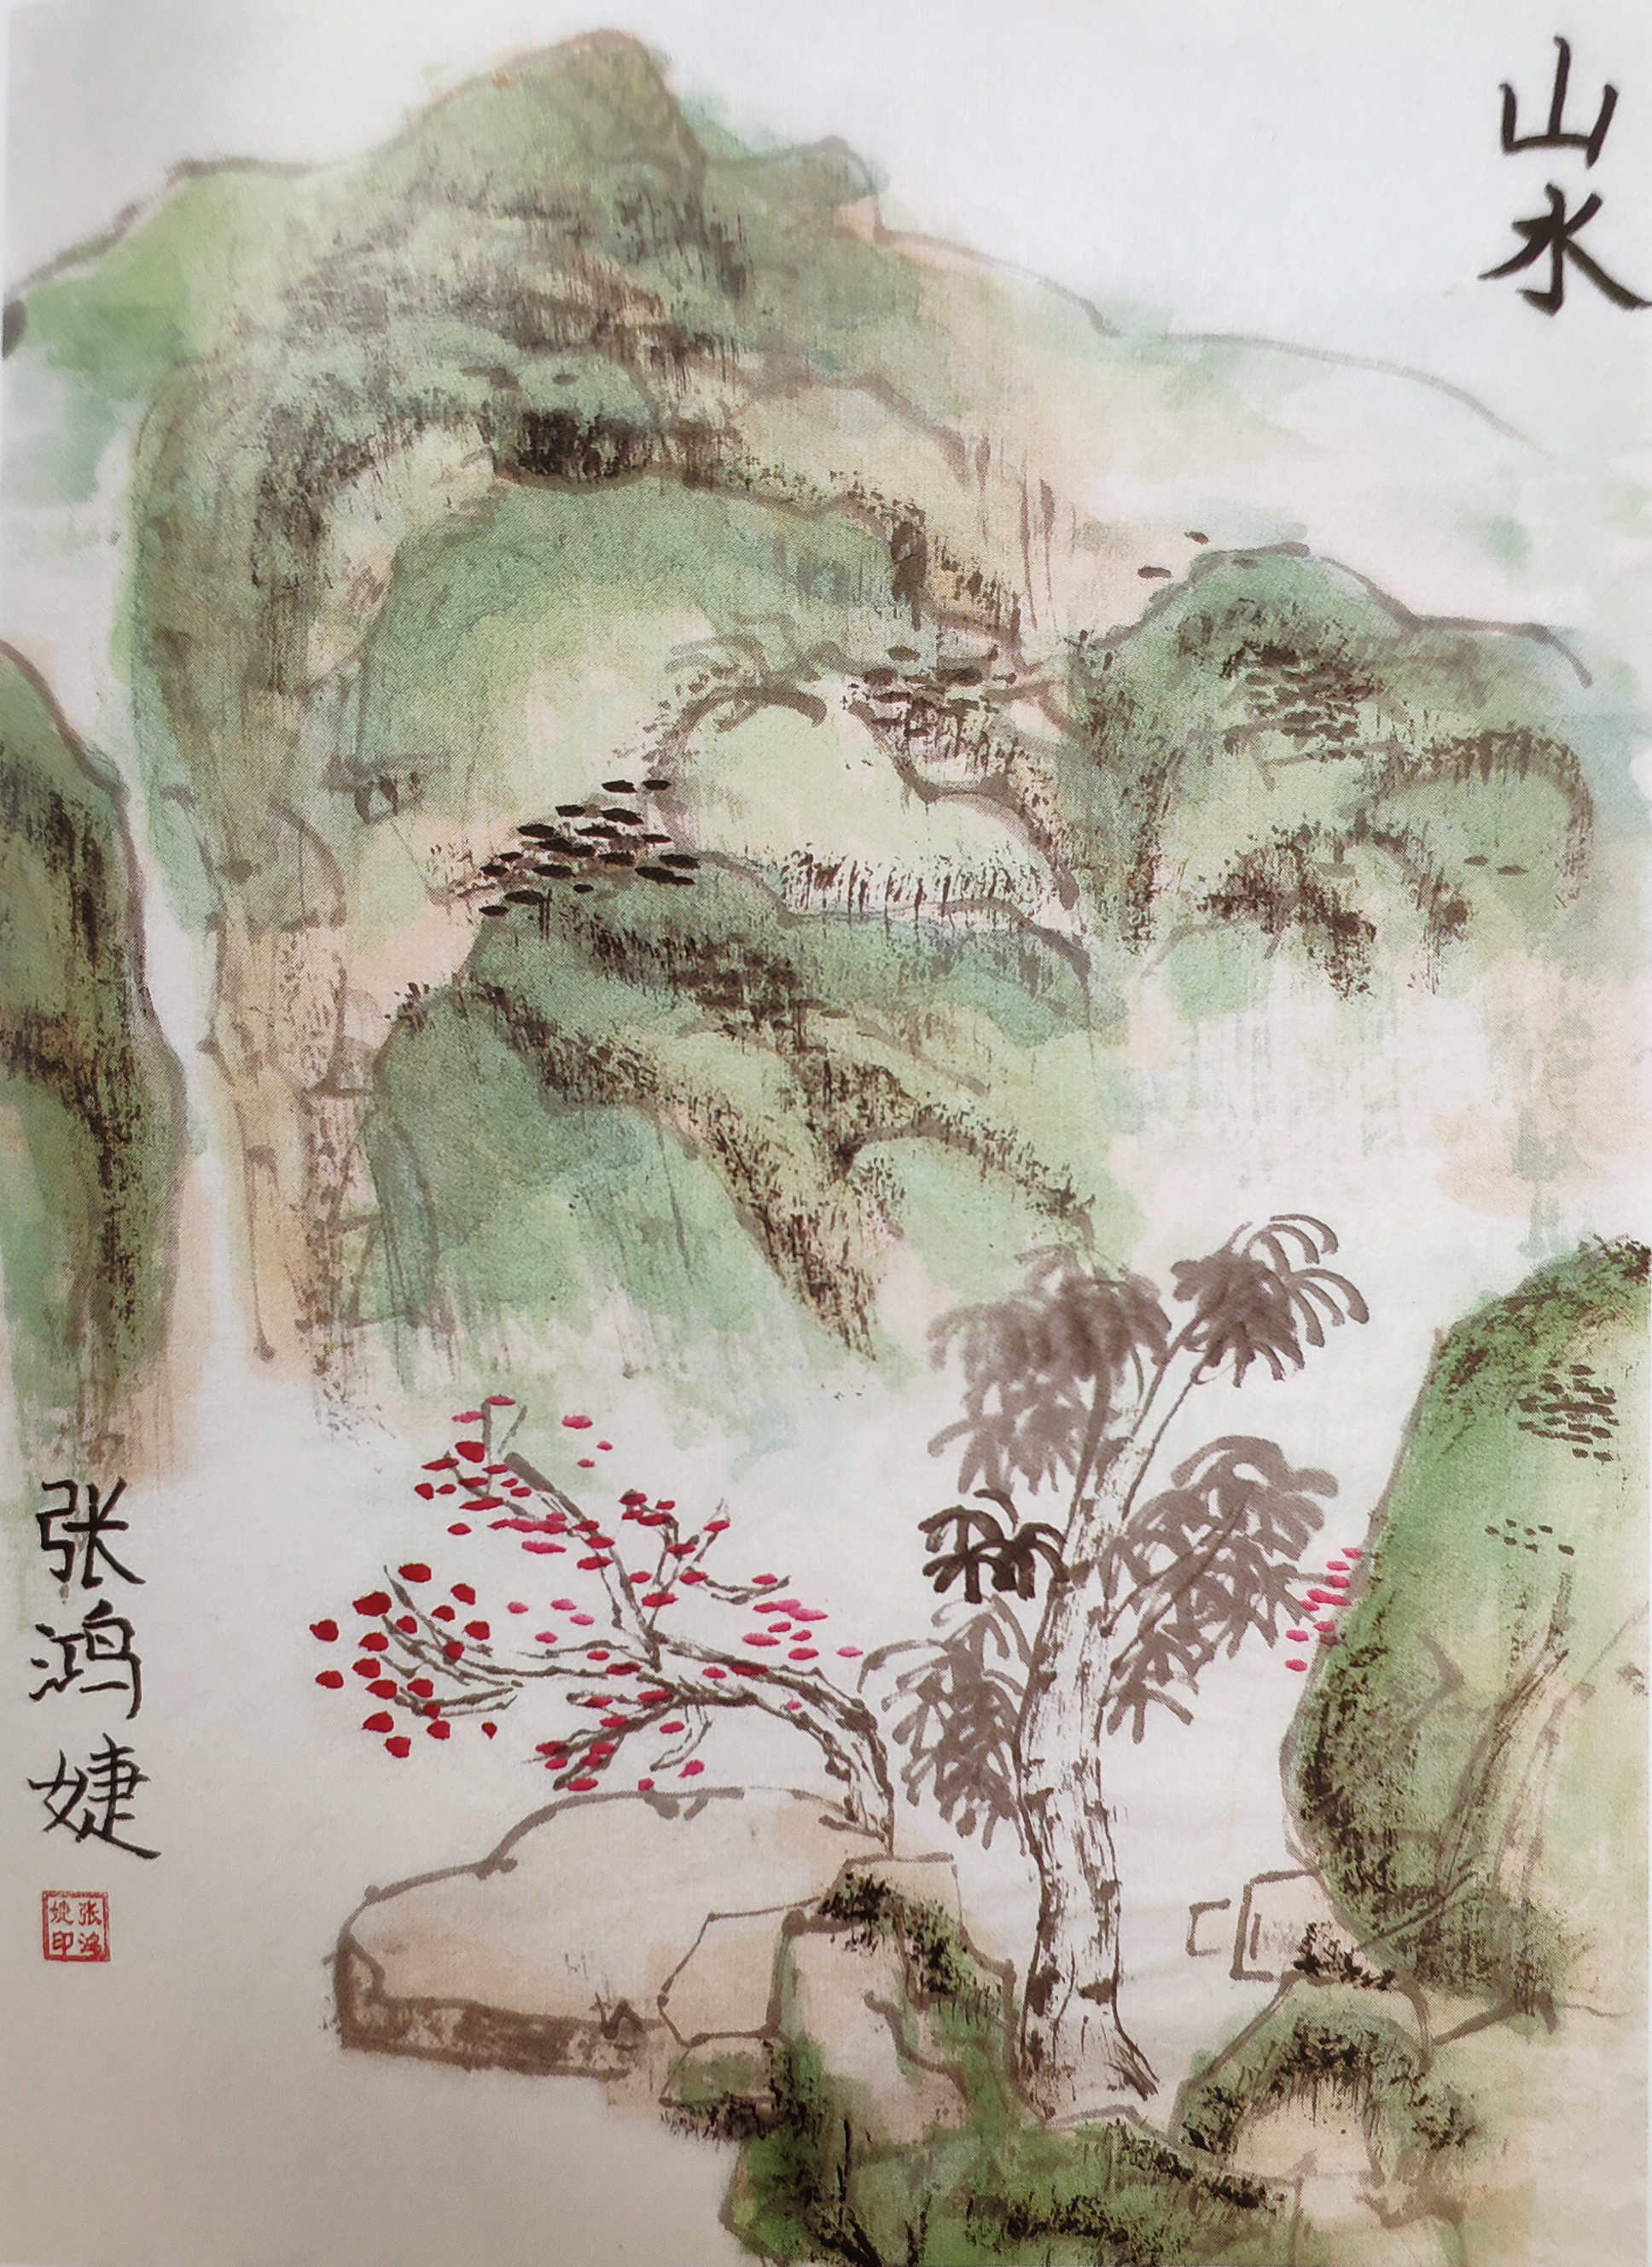 山水
张鸿婕
张鸿
婕印